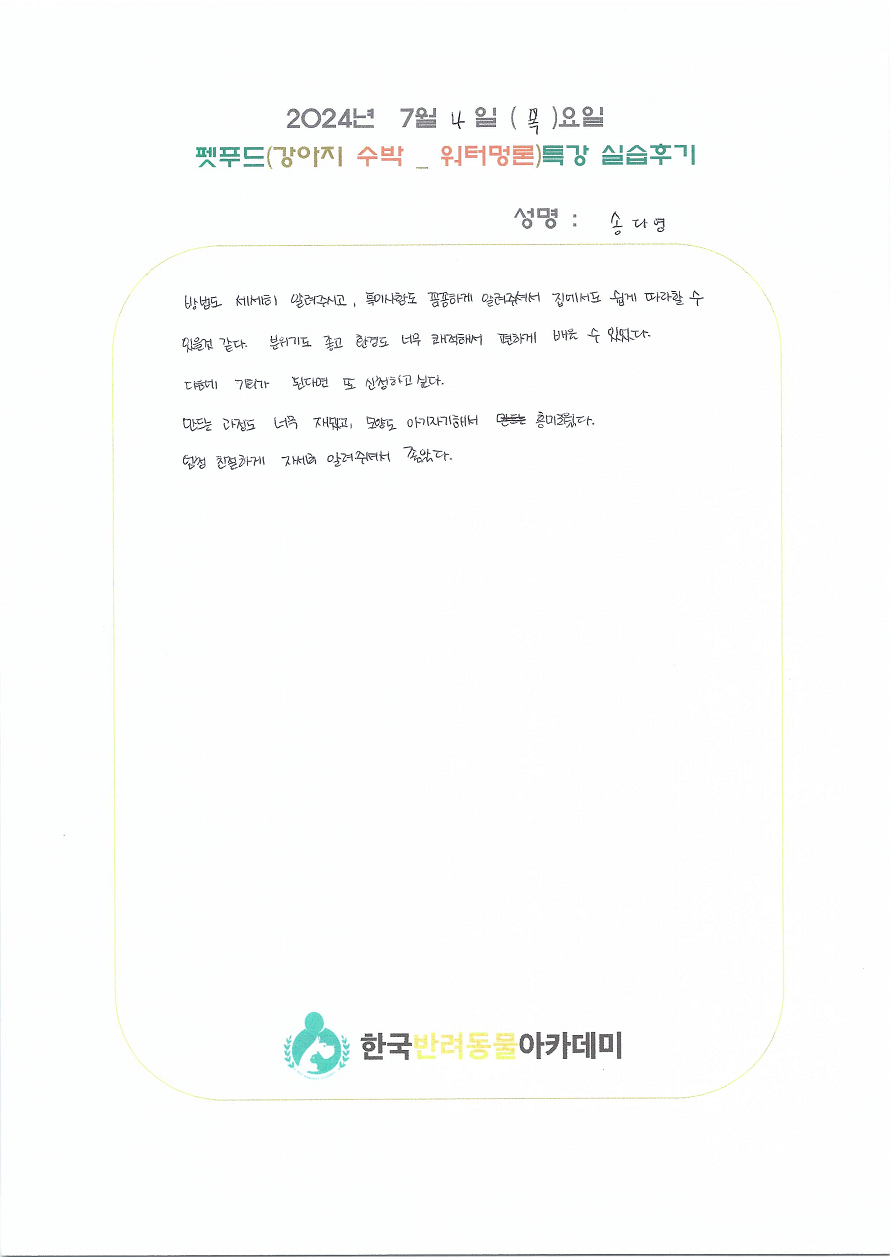 2024년 7월 4일 (목)요일
펫푸드(강아지 수박 _ 워터멍론)특강 실습후기
성명 : 송다영
방법도 세세히 알려주시고, 특이사항도 꼼꼼하게 알려주셔서 집에서도 쉽게 따라할 수
있을것 같다. 분위기도 좋고 환경도 너무 쾌적해서 편하게 배울 수 있었다.
다음에 기회가 된다면 또 신청하고 싶다.
만드는 과정도 너무 재밌고, 모양도 아기자기해서 만드는 흥미로웠다.
친절하게 자세히 알려주셔서 좋았다.
한국반려동물아카데미